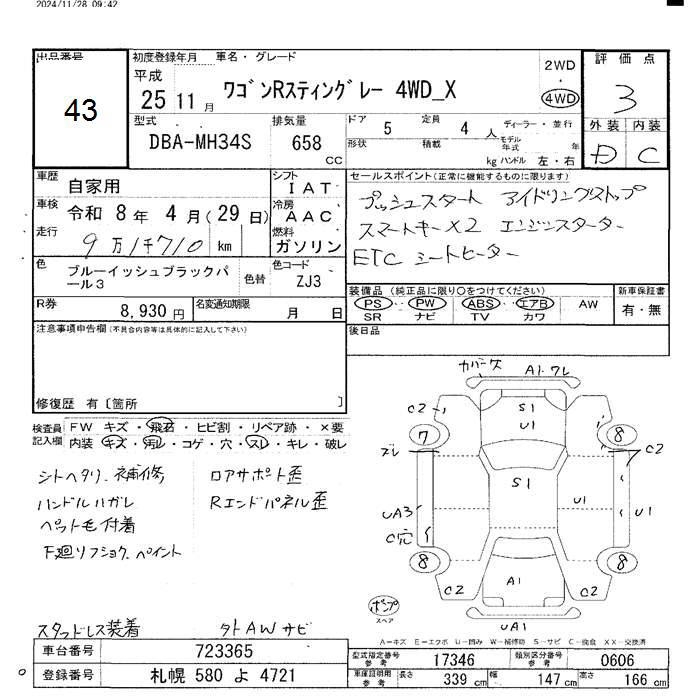 2024/11/28 09:42
出品番号
43
初度登録年月
平成
25 11 月
車名・グレード
ワゴンRスティングレー 4WD_X
2WD
・
4WD
評価点
3
外装 内装
D C
型式
DBA-MH34S
排気量
658
cc
ドア 5 定員 4 人
形状 積載 kg
ディーラー・並行
モデル年式 年
ハンドル 左・右
車歴 自家用
シフト IAT
車検 令和 8 年 4 月 (29 日)
冷房 AAC
走行 9万1千710 km
燃料 ガソリン
色 ブルーイッシュブラックパール3
色替
色コード ZJ3
セールスポイント(正常に機能するものに限ります)
プッシュスタート アイドリングストップ
スマートキーX2 エンジンスターター
ETC シートヒーター
装備品 (純正品に限り○をつけてください)
PS・PW・ABS・エアB AW
SR ナビ TV カワ
新車保証書
有・無
R券 8,930 円
名変通知期限 月 日
後日品
注意事項申告欄(不具合内容等は具体的に記入して下さい)
修復歴 有〔箇所 〕
検査員記入欄
FW キズ・飛石・ヒビ割・リペア跡・×要
内装 キズ・汚レ・コゲ・穴・スレ・キレ・破レ
シートヘタリ、補修
ハンドルハガレ
ペット毛付着
F廻リフショク、ペイント
ロアサポート歪
Rエンドパネル歪
スタッドレス装着
外AWサビ
カバー欠 A1.ワレ
C2
S1
U1
7
8
ズレ
C2
S1
UA3
U1
U1
C穴
8
8
C2
A1
C2
UA1
ポンプ
スペア
A-キズ E-エクボ U-凹み W-補修跡 S-サビ C-腐食 XX-交換済
車台番号 723365
登録番号 札幌 580 よ 4721
型式指定番号 参考 17346
類別区分番号 参考 0606
車庫証明用 参考 長さ 339 cm 幅 147 cm 高さ 166 cm